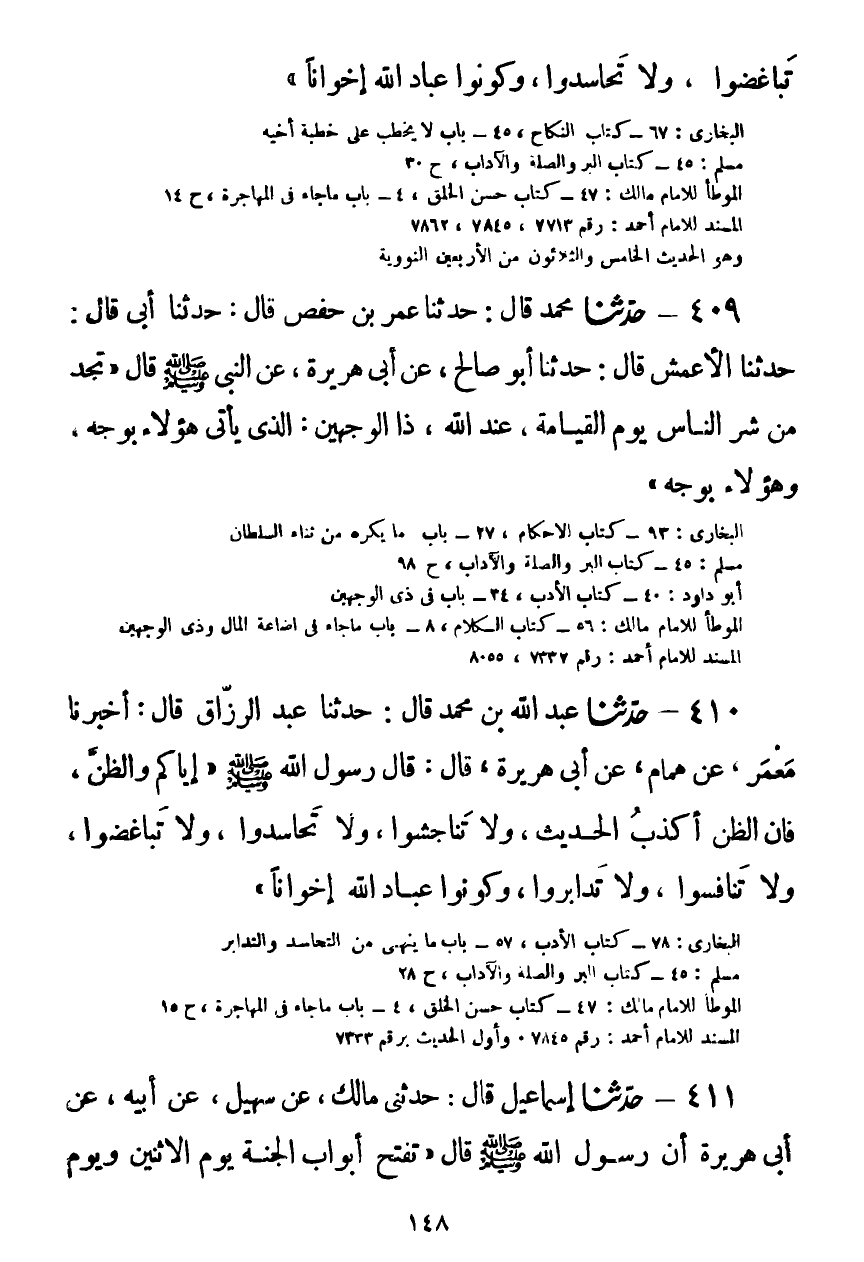 تَباغضوا ، ولا تَحاسدوا ، وكونوا عباد الله إخواناً »
البخارى : ٦٧ – كتاب النكاح ، ٤٥ – باب لا يخطب على خطبة أخيه
مسلم : ٤٥ – كتاب البر والصلة والآداب ، ح ٣٠
الموطأ للامام مالك : ٤٧ – كتاب حسن الخلق ، ٤ – باب ماجاء فى المهاجرة ، ح ١٤
المسند للامام أحمد : رقم ٧٧١٣ ، ٧٨٤٥ ، ٧٨٦٢
وهو الحديث الخامس والثلاثون من الأربعين النووية
٤٠٩ – حدّثنا محمد قال : حدثنا عمر بن حفص قال : حدثنا أبى قال :
حدثنا الأعمش قال : حدثنا أبو صالح ، عن أبى هريرة ، عن النبى ﷺ قال « تجد
من شر الناس يوم القيامة ، عند الله ، ذا الوجهين : الذى يأتى هؤلاء بوجه ،
وهؤلاء بوجه »
البخارى : ٩٣ – كتاب الاحكام ، ٢٧ – باب ما يكره من ثناء السلطان
مسلم : ٤٥ – كتاب البر والصلة والآداب ، ح ٩٨
أبو داود : ٤٠ – كتاب الأدب ، ٣٤ – باب فى ذى الوجهين
الموطأ للامام مالك : ٥٦ – كتاب الكلام ، ٨ – باب ماجاء فى اضاعة المال وذى الوجهين
المسند للامام أحمد : رقم ٧٣٣٧ ، ٨٠٥٥
٤١٠ – حدّثنا عبد الله بن محمد قال : حدثنا عبد الرزّاق قال : أخبرنا
مَعْمَر ، عن همام ، عن أبى هريرة ، قال : قال رسول الله ﷺ « إياكم والظنَّ ،
فان الظن أكذبُ الحديث ، ولا تَناجشوا ، ولا تَحاسدوا ، ولا تَباغضوا ،
ولا تَنافسوا ، ولا تَدابروا ، وكونوا عباد الله إخواناً »
البخارى : ٧٨ – كتاب الأدب ، ٥٧ – باب ما ينهى من التحاسد والتدابر
مسلم : ٤٥ – كتاب البر والصلة والآداب ، ح ٢٨
الموطأ للامام مالك : ٤٧ – كتاب حسن الخلق ، ٤ – باب ماجاء فى المهاجرة ، ح ١٥
المسند للامام أحمد : رقم ٧٨٤٥ ٠ وأول الحديث برقم ٧٣٣٣
٤١١ – حدّثنا إسماعيل قال : حدثنى مالك ، عن سهيل ، عن أبيه ، عن
أبى هريرة أن رسول الله ﷺ قال « تفتح أبواب الجنة يوم الاثنين ويوم
١٤٨